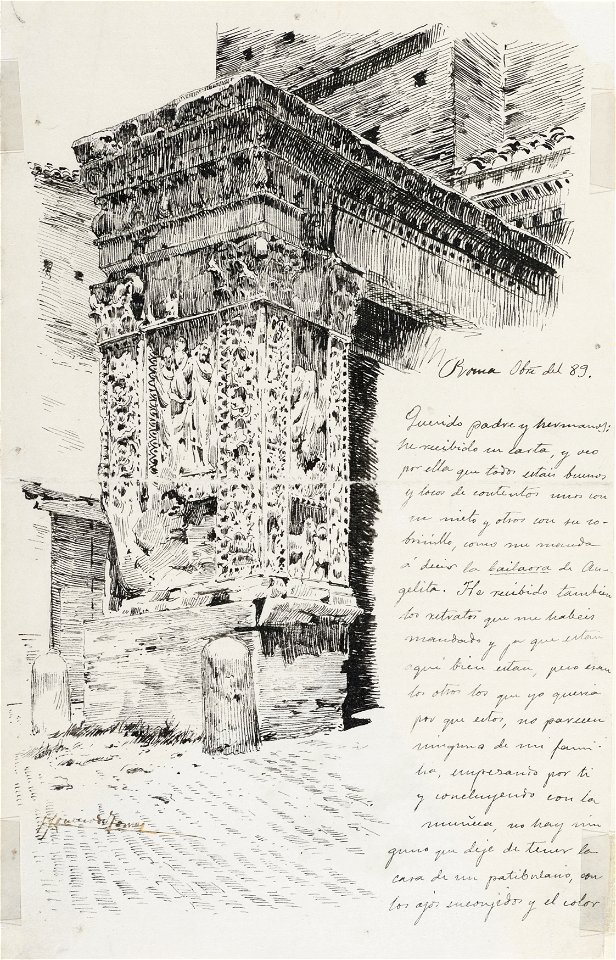 Roma Obre del 89.
Querido padre y hermanos:
he recibido su carta, y veo
por ella que todos estais buenos
y locos de contentos unos con
su nieto y otros con su so-
brinillo, como me manda
á decir la bailaora de An-
gelita. He recibido tambien
los retratos que me habeis
mandado y ya que estan
aqui bien estan, pero eran
los otros los que yo queria
por que estos, no parecen
ninguna de mi fami-
lia, empezando por ti
y concluyendo con la
muñeca, no hay nin
guno que deje de tener la
cara de un patibulario, con
los ojos encogidos y el color